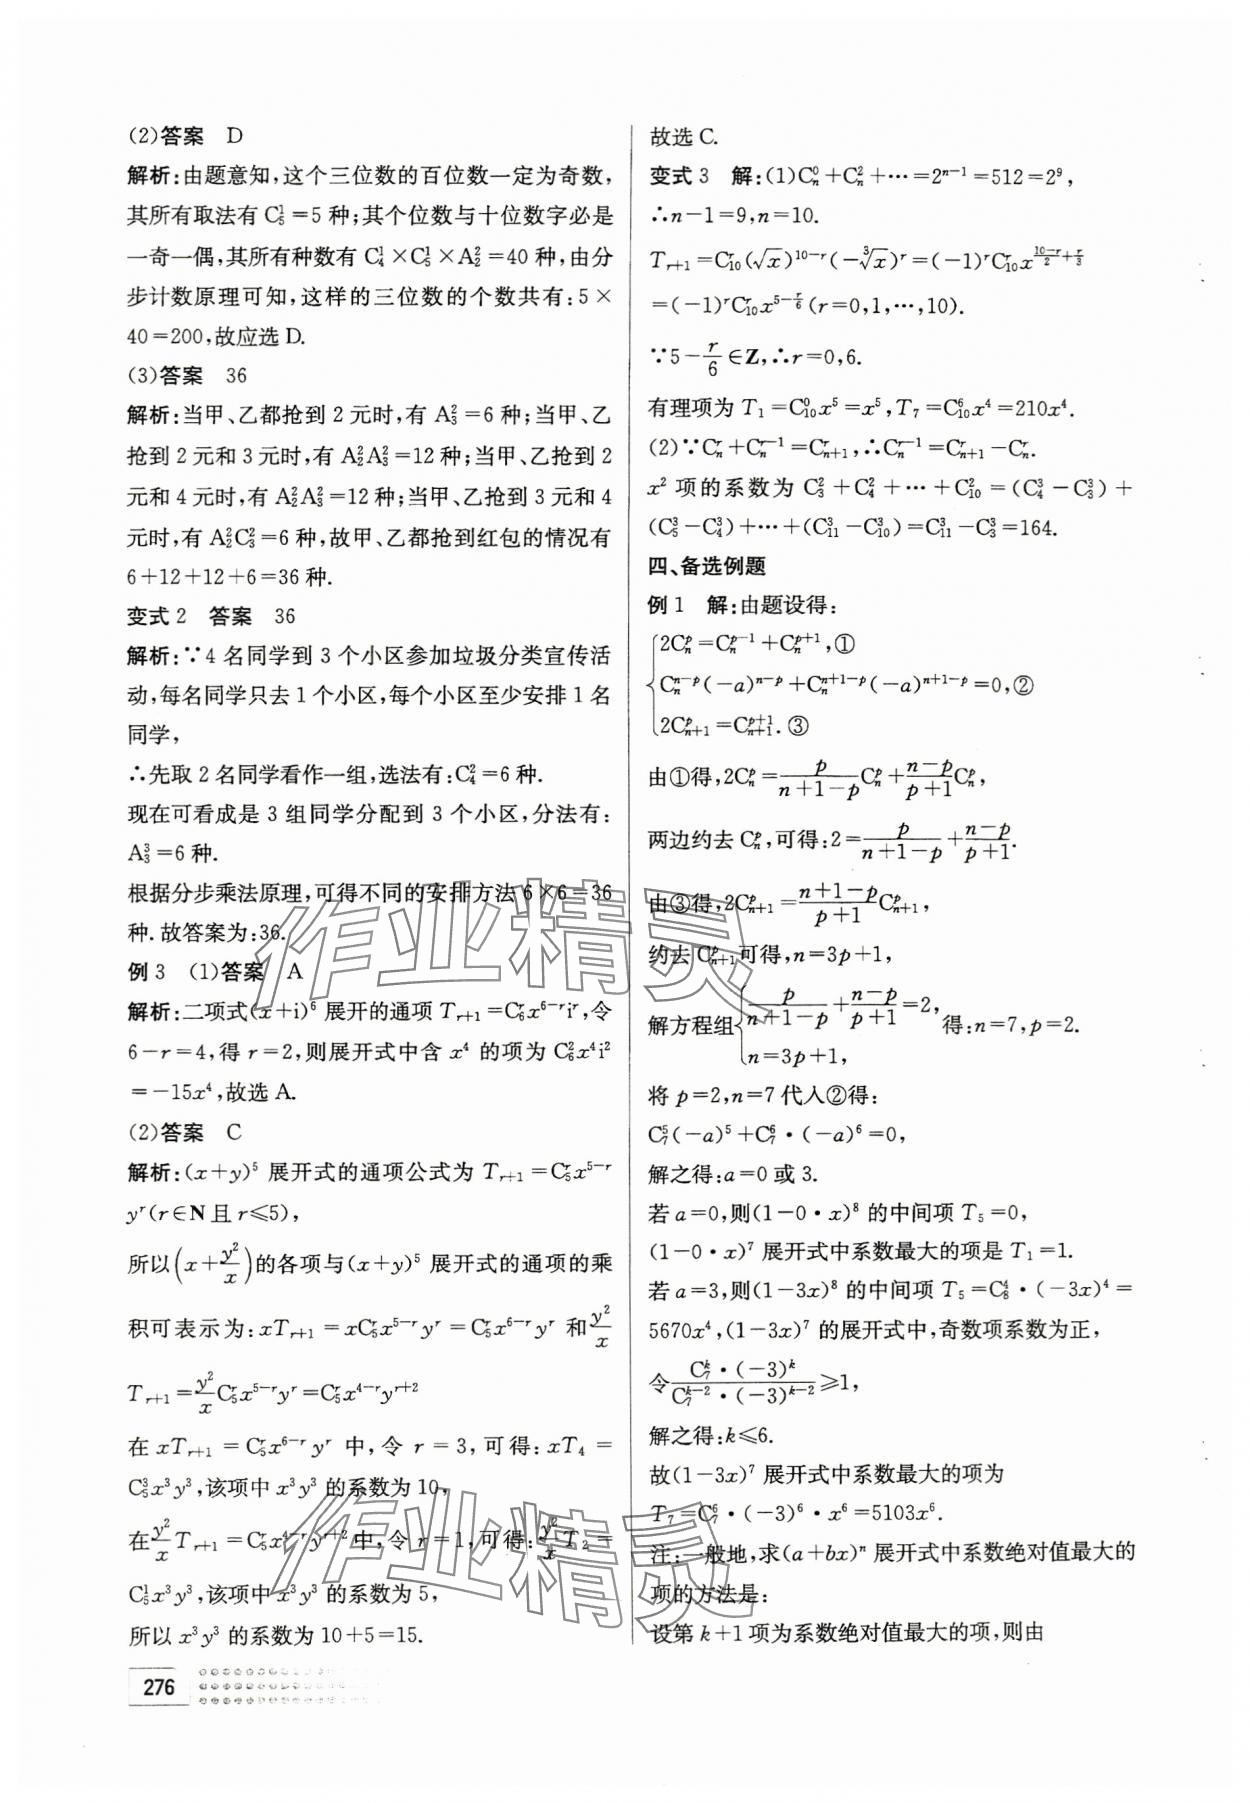 (2)答案　D
解析:由题意知,这个三位数的百位数一定为奇数,
其所有取法有 C₅¹=5 种;其个位数与十位数字必是
一奇一偶,其所有种数有 C₄¹×C₅¹×A₂²=40 种,由分
步计数原理可知,这样的三位数的个数共有:5×
40=200,故应选 D.
(3)答案　36
解析:当甲、乙都抢到 2 元时,有 A₃²=6 种;当甲、乙
抢到 2 元和 3 元时,有 A₂²A₃²=12 种;当甲、乙抢到 2
元和 4 元时,有 A₂²A₃²=12 种;当甲、乙抢到 3 元和 4
元时,有 A₂²C₃²=6 种,故甲、乙都抢到红包的情况有
6+12+12+6=36 种.
变式 2　答案　36
解析:∵4 名同学到 3 个小区参加垃圾分类宣传活
动,每名同学只去 1 个小区,每个小区至少安排 1 名
同学,
∴先取 2 名同学看作一组,选法有:C₄²=6 种.
现在可看成是 3 组同学分配到 3 个小区,分法有:
A₃³=6 种.
根据分步乘法原理,可得不同的安排方法 6×6=36
种.故答案为:36.
例 3　(1)答案　A
解析:二项式(x+i)⁶ 展开的通项 Tᵣ₊₁=C₆ʳx⁶⁻ʳiʳ,令
6-r=4,得 r=2,则展开式中含 x⁴ 的项为 C₆²x⁴i²
=-15x⁴,故选 A.
(2)答案　C
解析:(x+y)⁵ 展开式的通项公式为 Tᵣ₊₁=C₅ʳx⁵⁻ʳ
yʳ(r∈N 且 r≤5),
所以(x+y²/x)的各项与(x+y)⁵ 展开式的通项的乘
积可表示为:xTᵣ₊₁=xC₅ʳx⁵⁻ʳyʳ=C₅ʳx⁶⁻ʳyʳ 和 y²/x
Tᵣ₊₁=y²/x C₅ʳx⁵⁻ʳyʳ=C₅ʳx⁴⁻ʳyʳ⁺²
在 xTᵣ₊₁=C₅ʳx⁶⁻ʳyʳ 中,令 r=3,可得:xT₄=
C₅³x³y³,该项中 x³y³ 的系数为 10,
在 y²/x Tᵣ₊₁=C₅ʳx⁴⁻ʳyʳ⁺² 中,令 r=1,可得:y²/x T₂=
C₅¹x³y³,该项中 x³y³ 的系数为 5,
所以 x³y³ 的系数为 10+5=15.
276
故选 C.
变式 3　解:(1)Cₙ⁰+Cₙ²+⋯=2ⁿ⁻¹=512=2⁹,
∴n-1=9,n=10.
Tᵣ₊₁=C₁₀ʳ(√x)¹⁰⁻ʳ(-∛x)ʳ=(-1)ʳC₁₀ʳx^((10-r)/2+r/3)
=(-1)ʳC₁₀ʳx^(5-r/6)(r=0,1,⋯,10).
∵5-r/6∈Z,∴r=0,6.
有理项为 T₁=C₁₀⁰x⁵=x⁵,T₇=C₁₀⁶x⁴=210x⁴.
(2)∵Cₙʳ+Cₙʳ⁻¹=Cₙ₊₁ʳ,∴Cₙʳ⁻¹=Cₙ₊₁ʳ-Cₙʳ.
x² 项的系数为 C₃²+C₄²+⋯+C₁₀²=(C₄³-C₃³)+
(C₅³-C₄³)+⋯+(C₁₁³-C₁₀³)=C₁₁³-C₃³=164.
四、备选例题
例 1　解:由题设得:
2Cₙᵖ=Cₙᵖ⁻¹+Cₙᵖ⁺¹,①
Cₙⁿ⁻ᵖ(-a)ⁿ⁻ᵖ+Cₙⁿ⁺¹⁻ᵖ(-a)ⁿ⁺¹⁻ᵖ=0,②
2Cₙ₊₁ᵖ=Cₙ₊₁ᵖ⁺¹.③
由①得,2Cₙᵖ=p/(n+1-p) Cₙᵖ+(n-p)/(p+1) Cₙᵖ,
两边约去 Cₙᵖ,可得:2=p/(n+1-p)+(n-p)/(p+1).
由③得,2Cₙ₊₁ᵖ=(n+1-p)/(p+1) Cₙ₊₁ᵖ,
约去 Cₙ₊₁ᵖ可得,n=3p+1,
解方程组{p/(n+1-p)+(n-p)/(p+1)=2, n=3p+1, 得:n=7,p=2.
将 p=2,n=7 代入②得:
C₇⁵(-a)⁵+C₇⁶·(-a)⁶=0,
解之得:a=0 或 3.
若 a=0,则(1-0·x)⁸ 的中间项 T₅=0,
(1-0·x)⁷ 展开式中系数最大的项是 T₁=1.
若 a=3,则(1-3x)⁸ 的中间项 T₅=C₈⁴·(-3x)⁴=
5670x⁴,(1-3x)⁷ 的展开式中,奇数项系数为正,
令 C₇ᵏ·(-3)ᵏ/(C₇ᵏ⁻²·(-3)ᵏ⁻²)≥1,
解之得:k≤6.
故(1-3x)⁷ 展开式中系数最大的项为
T₇=C₇⁶·(-3)⁶·x⁶=5103x⁶.
注:一般地,求(a+bx)ⁿ 展开式中系数绝对值最大的
项的方法是:
设第 k+1 项为系数绝对值最大的项,则由
作业精灵
作业精灵